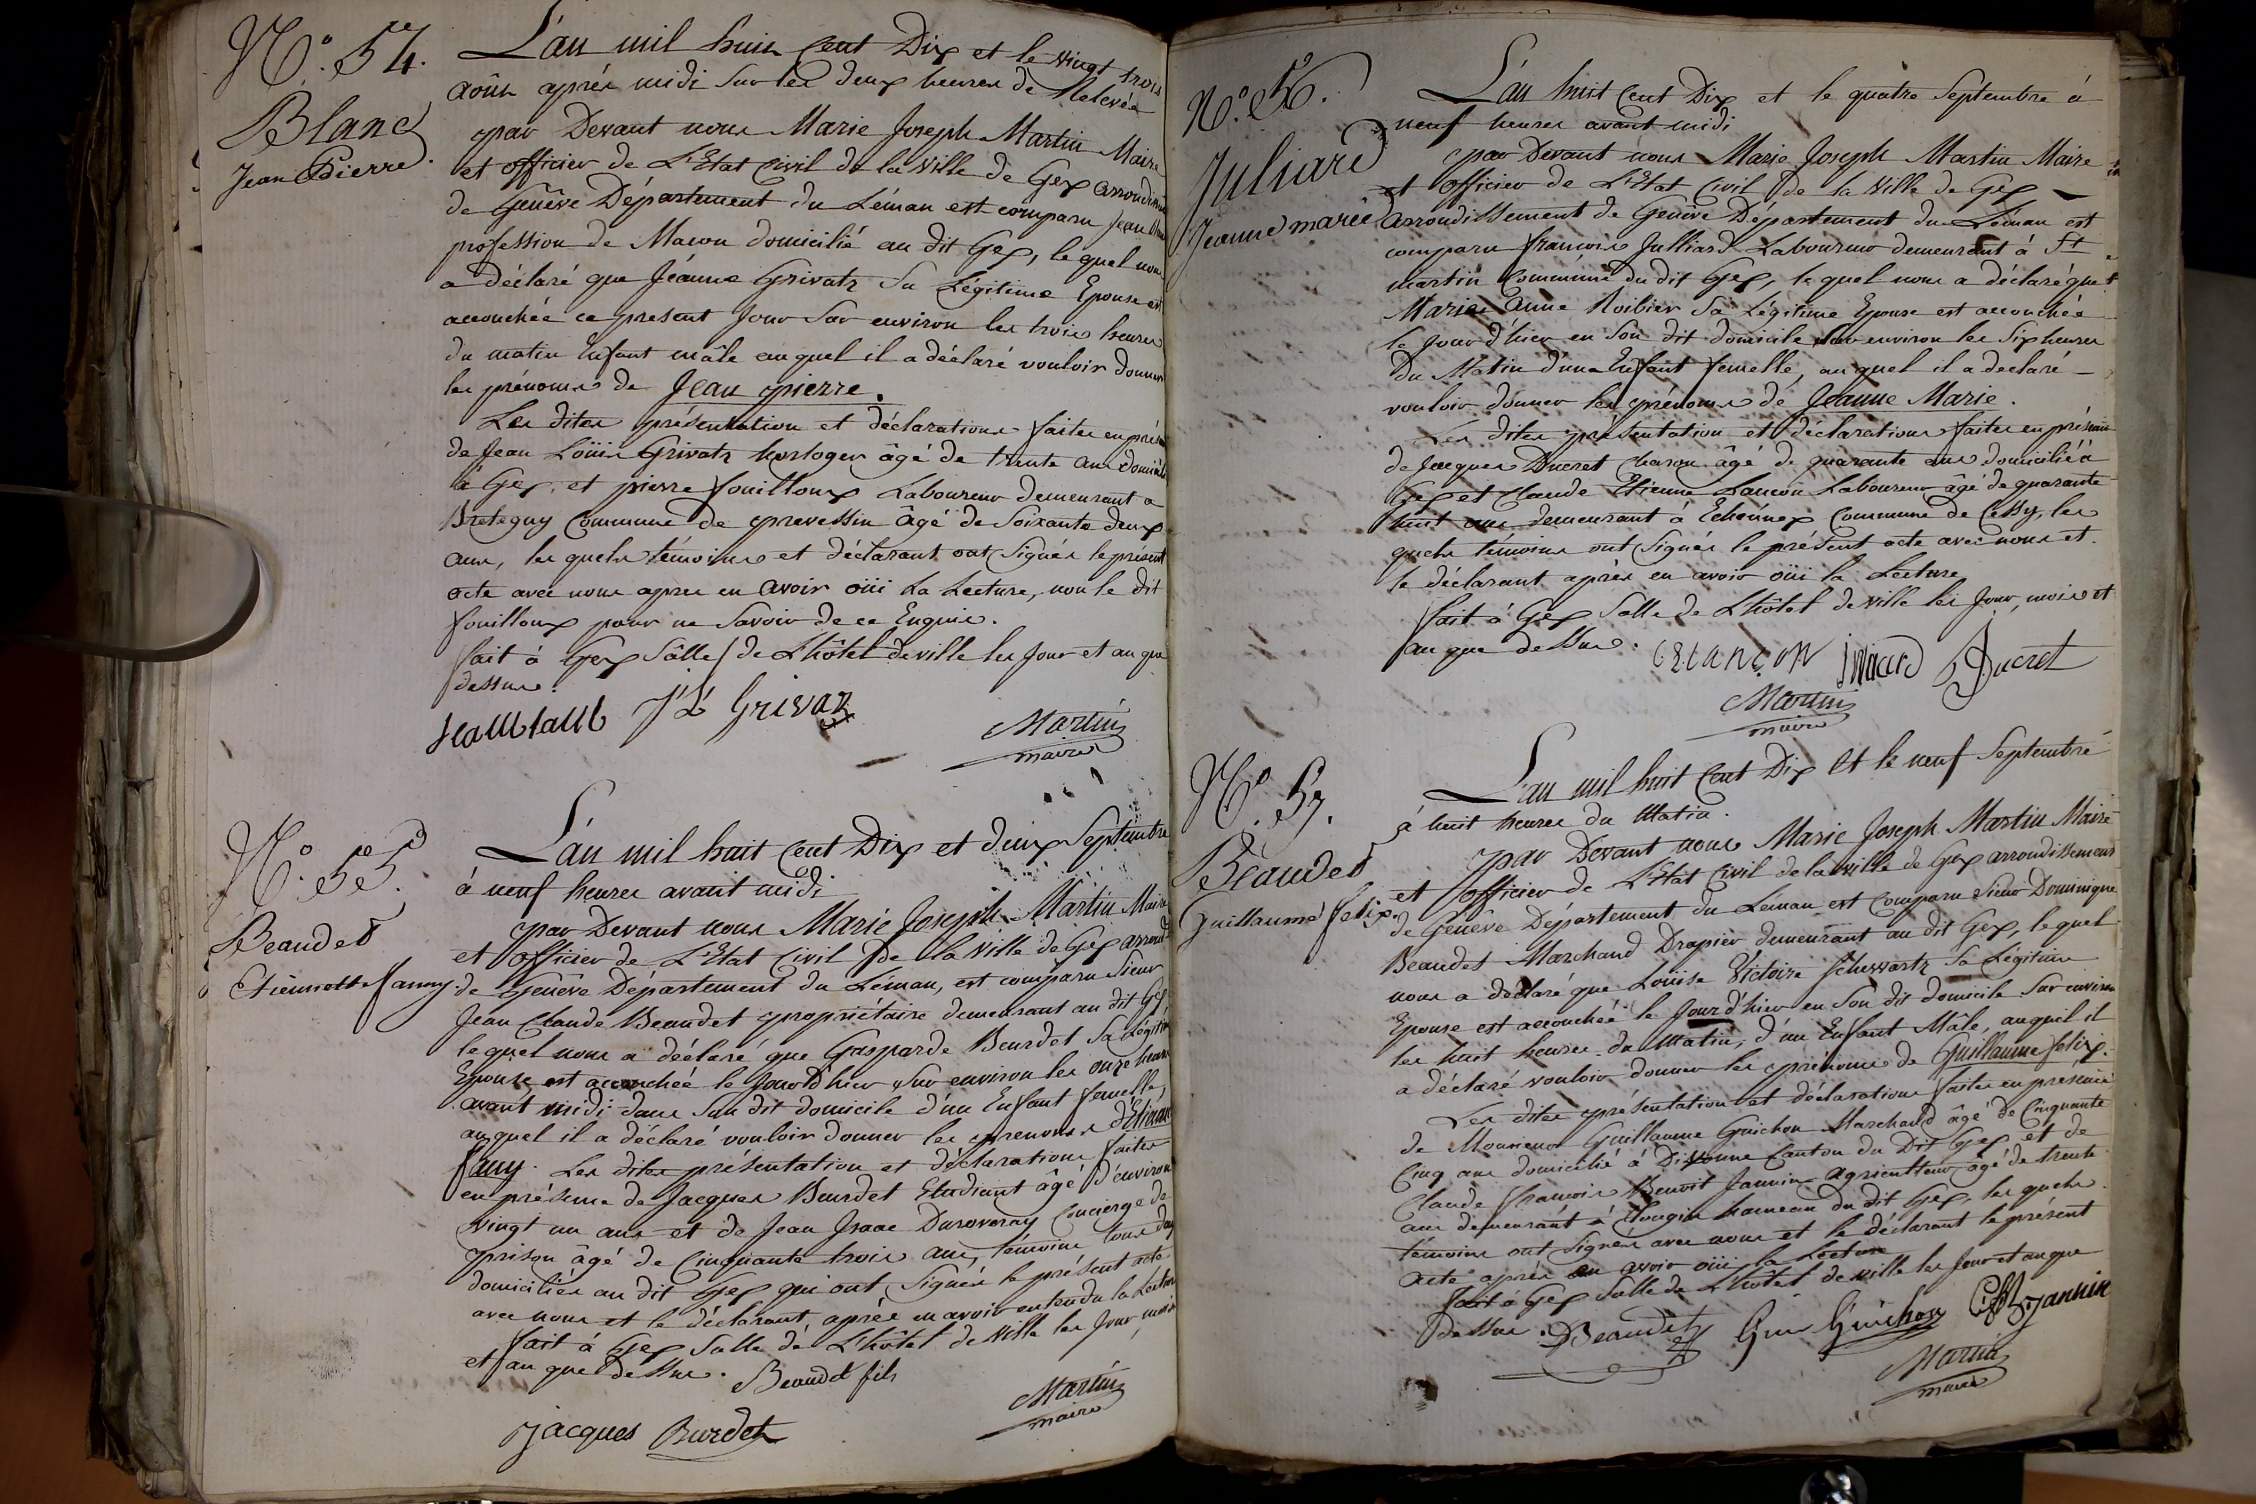 N.° 54.
Blanc
Jean Pierre.
L'an mil huit Cent Dix et le vingt trois
août après midi sur les deux heures de Relevée
par Devant nous Marie Joseph Martin Maire
et officier de L'Etat Civil de la ville de Gex arrondissem
de Genêve Département du Léman est comparu Jean
profession de Macon domicilié au dit Gex, lequel nous
a déclaré que Jéanne Grivatz Sa Légitime Epouse est
accouchée ce present Jour Sur environ les trois heures
du matin Enfant mâle auquel il a déclaré vouloir donner
les prénoms de Jean pierre.
Les dites présentation et déclarations faites en prés
de Jean Loüis Grivatz horloger âgé de trente ans domicilié
à Gex, et pierre fouilloux Laboureur demeurant a
Bretegny Commune de prevessin âgé de Soixante deux
ans, les quels témoins et déclarant ont Signés le présent
acte avec nous apres en avoir oüi La Lecture, non le dit
fouilloux pour ne Savoir de ce Enquis.
fait à Gex Sâlle de L'hôtel de ville les Jour et an que
dessus.
Jean blanc J L Grivaz
Martin
maire
N.° 55.
Beaudet
Etiennette fanny.
L'an mil huit Cent Dix et deux Septembre
à neuf heures avant midi
par Devant nous Marie Joseph Martin Maire
et officier de L'Etat Civil de la ville de Gex arrond
de Genêve Département du Léman, est comparu Sieur
Jean Claude Beaudet propriétaire demeurant au dit Gex,
lequel nous a déclaré que Gasparde Beurdet Sa Légitime
Epouse est accouchée le Jour d'hier Sur environ les onze heures
avant midi dans Son dit domicile d'un Enfant femelle,
auquel il a déclaré vouloir donner les prenoms d'Etienette
fany. Les dites présentation et déclarations faites
en présence de Jacques Beurdet Etudiant âgé d'environ
vingt un ans et de Jean Isaac Duroveray Concierge de
prison âgé de Cinquante trois ans, témoins tous deux
domiciliés au dit Gex qui ont Signés le présent acte
avec nous et le déclarant, après en avoir entendu la Lecture
fait à Gex Salle de L'hôtel de ville les Jour, mois
et an que dessus.
Beaudet fils
Martin
maire
Jacques Burdet
N.° 56.
Juliard
Jeanne marie
L'an huit Cent Dix et le quatre Septembre à
neuf heures avant midi
par Devant nous Marie Joseph Martin Maire
et officier de L'Etat Civil de la ville de Gex
arrondissement de Genêve Département du Léman est
comparu françois Julliard Laboureur demeurant à St
martin Commune du dit Gex, lequel nous a déclaré que
Marie Anne Roibier Sa Légitime Epouse est accouchée
le Jour d'hier en Son dit domicile sur environ les Six heures
du Matin d'un Enfant femelle, auquel il a déclaré
vouloir donner les prénoms de Jeanne Marie.
Les dites présentation et déclarations faites en présence
de Jacques Ducret Charon âgé de quarante ans domicilié à
Gex et Claude Etienne Lançon Laboureur âgé de quarante
huit ans demeurant à Echenex Commune de Cessy, les
quels témoins ont Signés le présent acte avec nous et
le déclarant après en avoir oüi la Lecture
fait à Gex Salle de L'hôtel de ville les Jour, mois et
an que dessus.
CELançon Juliard J Ducret
Martin
maire
N.° 57.
Beaudet
Guillaume felix.
L'an mil huit Cent Dix Et le neuf Septembre
à huit heures du Matin.
par Devant nous Marie Joseph Martin Maire
et officier de L'Etat Civil de la ville de Gex arrondissement
de Genêve Département du Leman est comparu Sieur Dominique
Beaudet Marchand Drapier demeurant au dit Gex, lequel
nous a déclaré que Louise Victoire Schewartz Sa Légitime
Epouse est accouchée le Jour d'hier en Son dit domicile Sur environ
les huit heures du Matin, d'un Enfant Mâle, auquel il
a déclaré vouloir donner les prénoms de Guillaume felix.
Les dites présentation et déclarations faites en présence
de Monsieur Guillaume Guichon Marchand âgé de Cinquante
Cinq ans domicilié à Divonne Canton du dit Gex et de
Claude françois Benoit Jannin agriculteur âgé de trente
ans demeurant à Tougin hameau du dit Gex, les quels
témoins ont Signés avec nous et le déclarant le présent
acte après en avoir oüi la Lecture
fait à Gex Salle de L'hôtel de ville les Jour et an que
dessus.
D Beaudet Gme Guichon CfB Jannin
Martin
maire